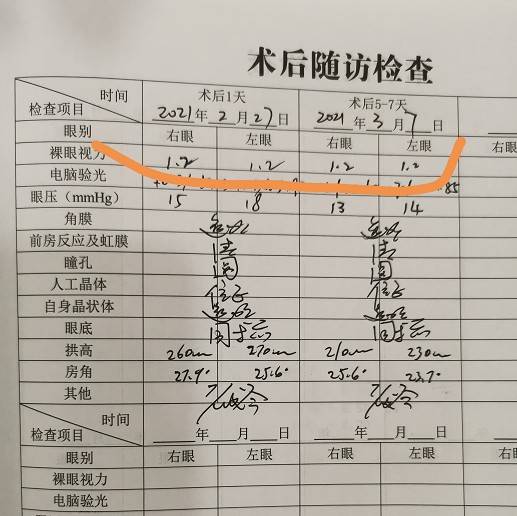 术后随访检查
时间 术后1天 术后5-7天
检查项目 2021年2月27日 2021年3月7日
眼别 右眼 左眼 右眼 左眼 右眼
裸眼视力 1.2 1.2 1.2 1.2
电脑验光
眼压（mmHg） 15 18 13 14
角膜 透明 透明
前房反应及虹膜 清 清
瞳孔 圆 圆
人工晶体 位正 位正
自身晶状体 透明 透明
眼底
拱高 260um 270um 210um 230um
房角 27.9° 25.6° 25.6° 23.7°
其他
时间
检查项目 年 月 日 年 月 日
眼别 右眼 左眼 右眼 左眼 右眼
裸眼视力
电脑验光